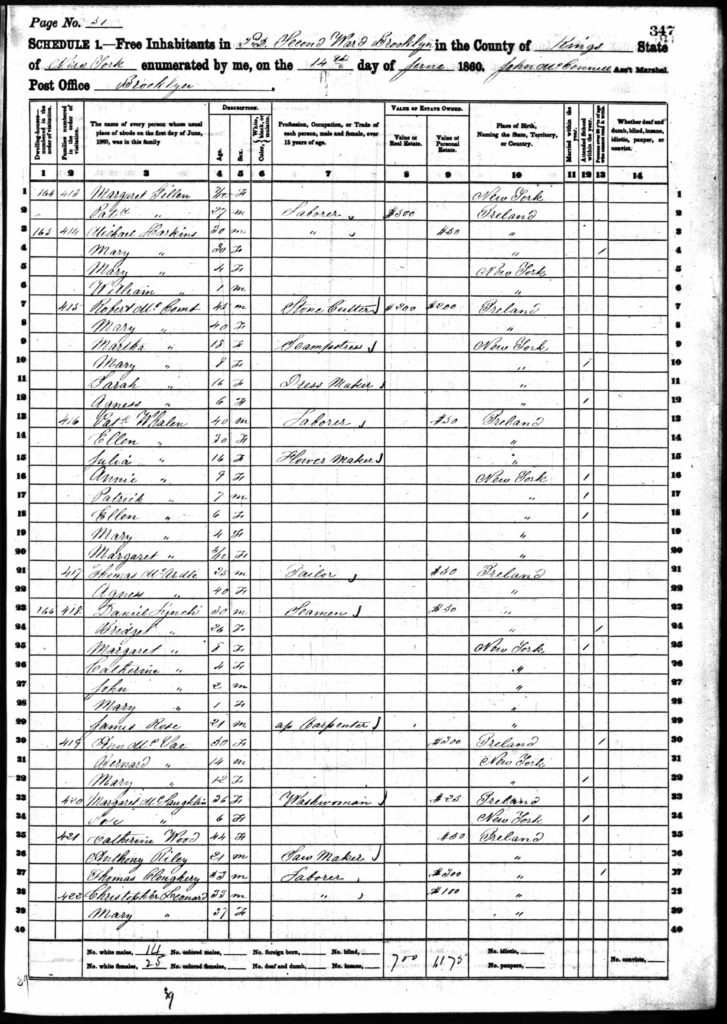 Page No. 51
347
SCHEDULE 1.—Free Inhabitants in P.D. Second Ward Brooklyn in the County of Kings State
of New York enumerated by me, on the 14th day of June 1860. John McConnell Ass't Marshal.
Post Office Brooklyn.
Dwelling-houses—numbered in the order of visitation. Families numbered in the order of visitation. The name of every person whose usual place of abode on the first day of June, 1860, was in this family. DESCRIPTION. Age. Sex. Color, White, black, or mulatto. Profession, Occupation, or Trade of each person, male and female, over 15 years of age. VALUE OF ESTATE OWNED. Value of Real Estate. Value of Personal Estate. Place of Birth, Naming the State, Territory, or Country. Married within the year. Attended School within the year. Persons over 20 y'rs of age who cannot read & write. Whether deaf and dumb, blind, insane, idiotic, pauper, or convict.
1 2 3 4 5 6 7 8 9 10 11 12 13 14
1 164 413 Margaret Fillen /12 F New York 1
2 " Patk " 27 m Laborer $500 Ireland 2
3 165 414 Michael Harkins 30 m " $50 " 3
4 Mary " 30 F " 1 4
5 Mary " 4 F New York 5
6 William " 1 m " 6
7 415 Robert McComb 45 m Stone Cutter $200 $200 Ireland 7
8 Mary " 40 F " 8
9 Martha " 18 F Seampstress New York 9
10 Mary " 8 F " 1 10
11 Sarah " 16 F Dress Maker " 11
12 Agness " 6 F " 1 12
13 416 Patk Whalen 40 m Laborer $50 Ireland 13
14 Ellen " 30 F " 14
15 Julia " 16 F Flower Maker " 15
16 Annie " 9 F New York 1 16
17 Patrick " 7 m " 1 17
18 Ellen " 6 F " 1 18
19 Mary " 4 F " 19
20 Margaret " /12 F " 20
21 417 Thomas McArdle 25 m Tailor $50 Ireland 21
22 Agness " 40 F " 22
23 166 418 Daniel Lynch 30 m Seamen $50 " 23
24 Bridget " 26 F " 1 24
25 Margaret " 8 F New York 1 25
26 Catherine " 4 F " 26
27 John " 2 m " 27
28 Mary " 1 F " 28
29 James Rose 21 m ap Carpenter " 29
30 419 Ann McVae 50 F $300 Ireland 1 30
31 Bernard " 14 m New York 31
32 Mary " 12 F " 1 32
33 420 Margaret McLaughlin 36 F Washwoman $25 Ireland 33
34 " 6 F New York 1 34
35 421 Catherine Wood 44 F $50 Ireland 35
36 Anthony Riley 21 m Saw Maker " 36
37 Thomas 33 m Laborer $300 " 1 37
38 422 Christopher Leonard 33 m " $100 " 38
39 Mary " 27 F " 39
40 40
No. white males, 14 No. colored males, No. foreign born, No. blind, No. idiotic,
No. white females, 25 No. colored females, No. deaf and dumb, No. insane, 700 1175 No. paupers, No. convicts,
39
39